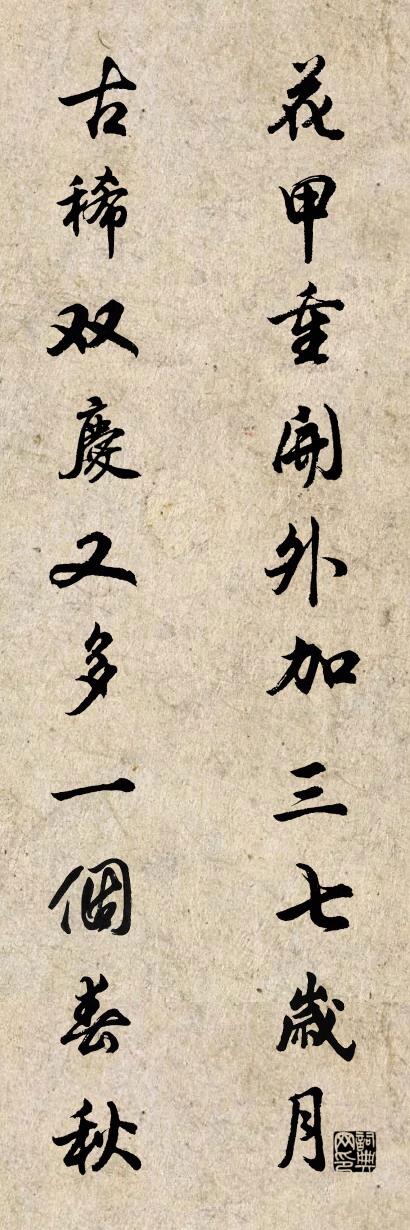 花甲重開外加三七歲月
古稀双慶又多一個春秋
詞典網印